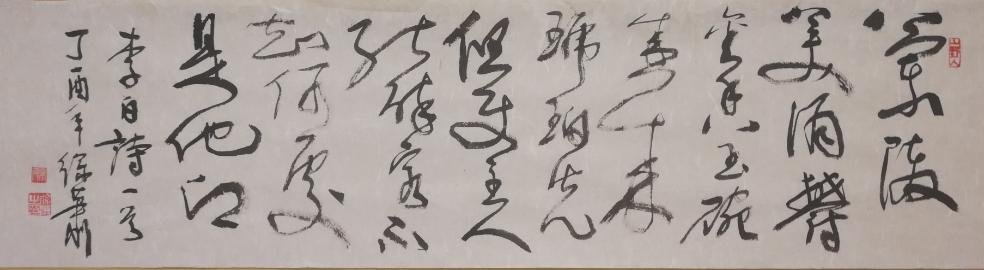 蘭陵
美酒鬱
金香玉碗
盛来
琥珀光
但使主人
能醉客不
知何處
是他鄉
李白詩一首
丁酉年